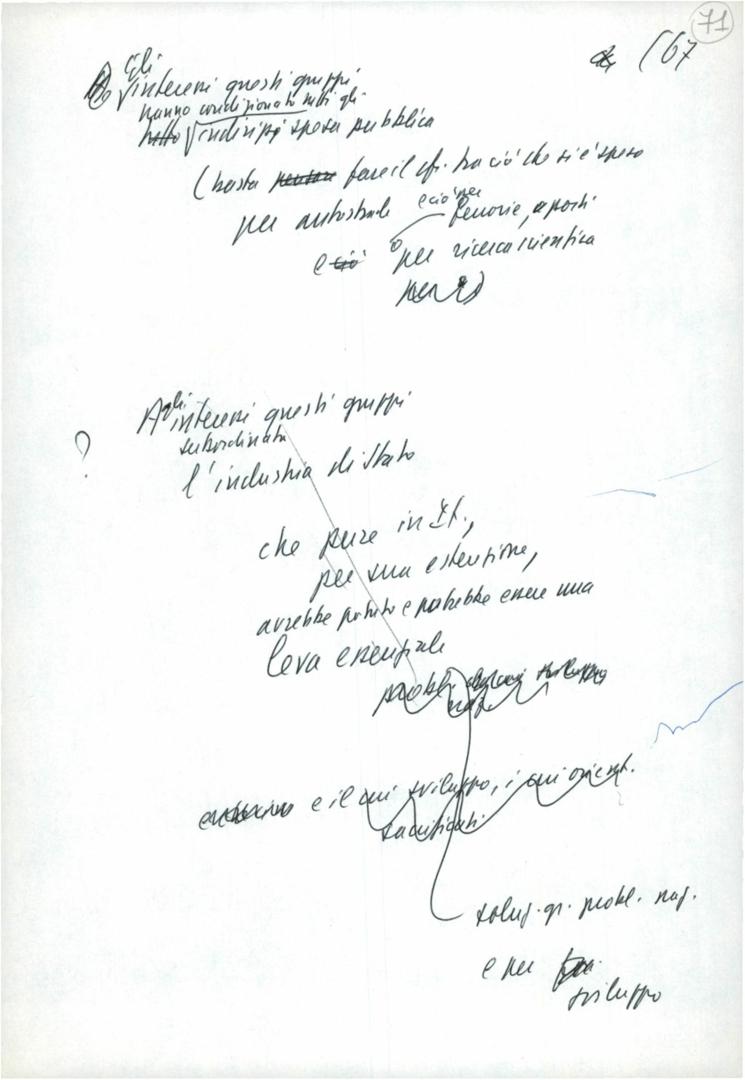 71
(67
Gli
interessi questi gruppi
hanno condizionato tutti gli
indirizzi spesa pubblica
(basta fare il cfr. tra ciò che si è speso
per autostrade e ciò per ferrovie, a porti
e per ricerca scientifica
Agli interessi questi gruppi
?
subordinata
l'industria di Stato
che pure in It.,
per sua estensione,
avrebbe potuto e potrebbe essere una
leva essenziale
probl. sviluppo
naz.
e il cui sviluppo, i cui orient.
sacrificati
soluz. gr. probl. naz.
e per
sviluppo